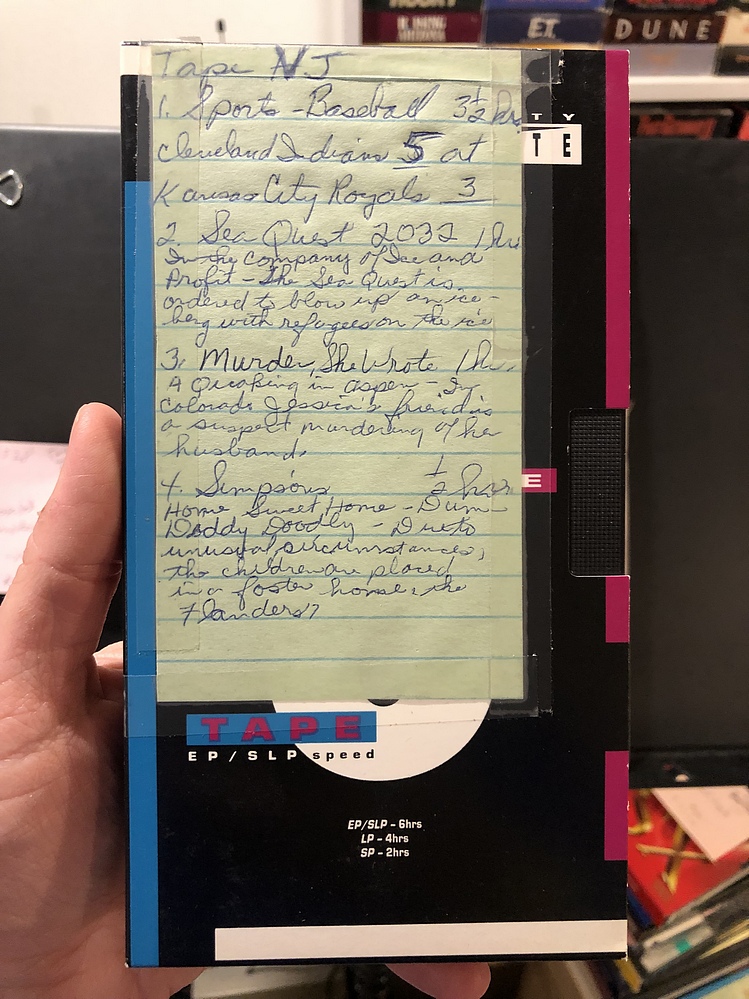 E.T.
DUNE
Tape NJ
1. Sports - Baseball 3½ hrs
Cleveland Indians 5 at
Kansas City Royals 3
2. Sea Quest 2032 1 hr
In the Company of Ice and
Profit - The Sea Quest is
ordered to blow up an ice-
berg with refugees on the ice
3. Murder, She Wrote 1 hr.
A Quaking in aspen - In
Colorado Jessica's friend is
a suspect murdering of her
husband.
4. Simpsons ½ hour
Home Sweet Home - Dum-
Doddy Doodly - Due to
unusual circumstances,
the children are placed
in a foster home, the
Flanders?
TY
TE
E
TAPE
EP/SLP speed
EP/SLP – 6hrs
LP – 4hrs
SP – 2hrs